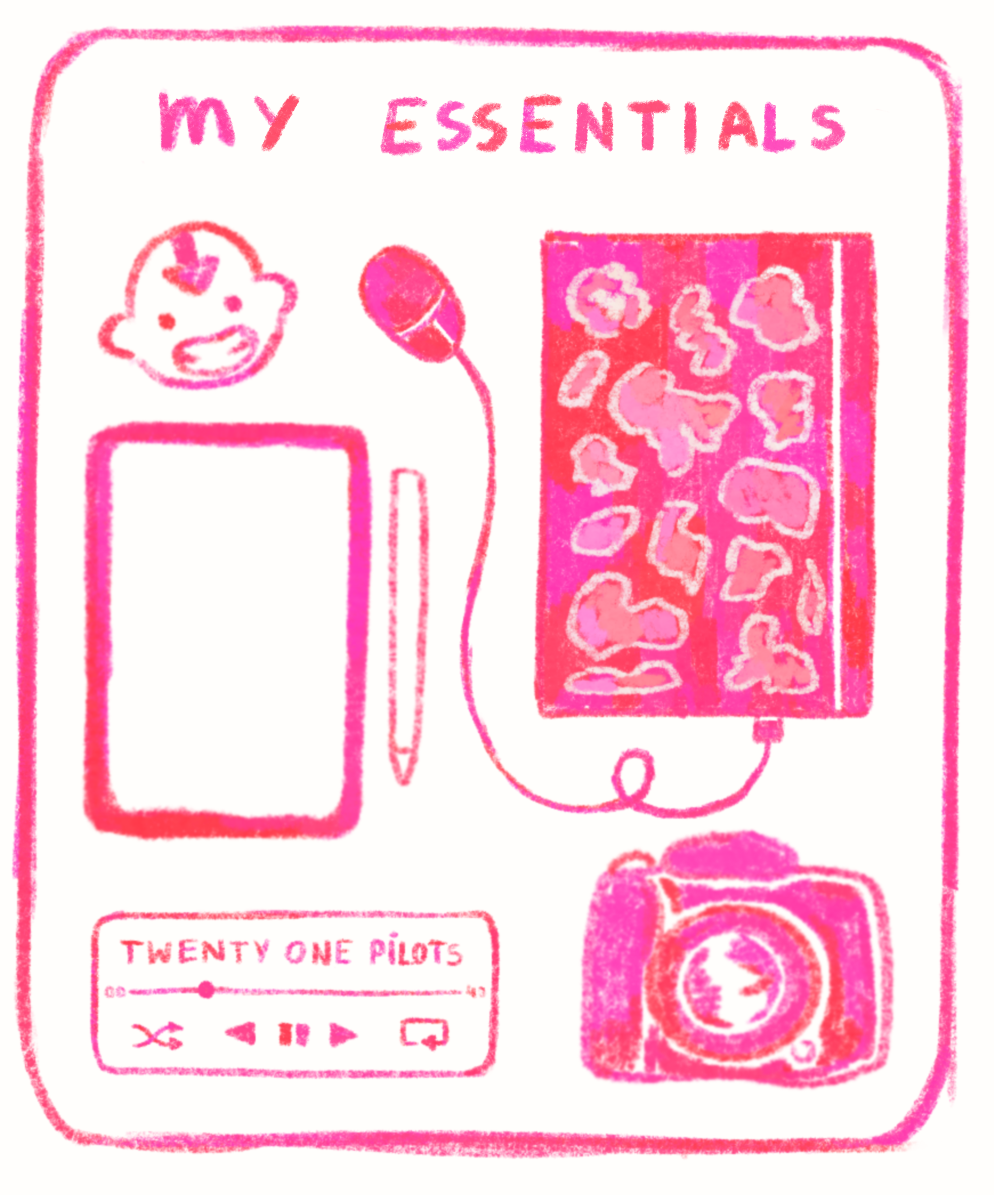 MY ESSENTIALS
TWENTY ONE PiLOTS
00